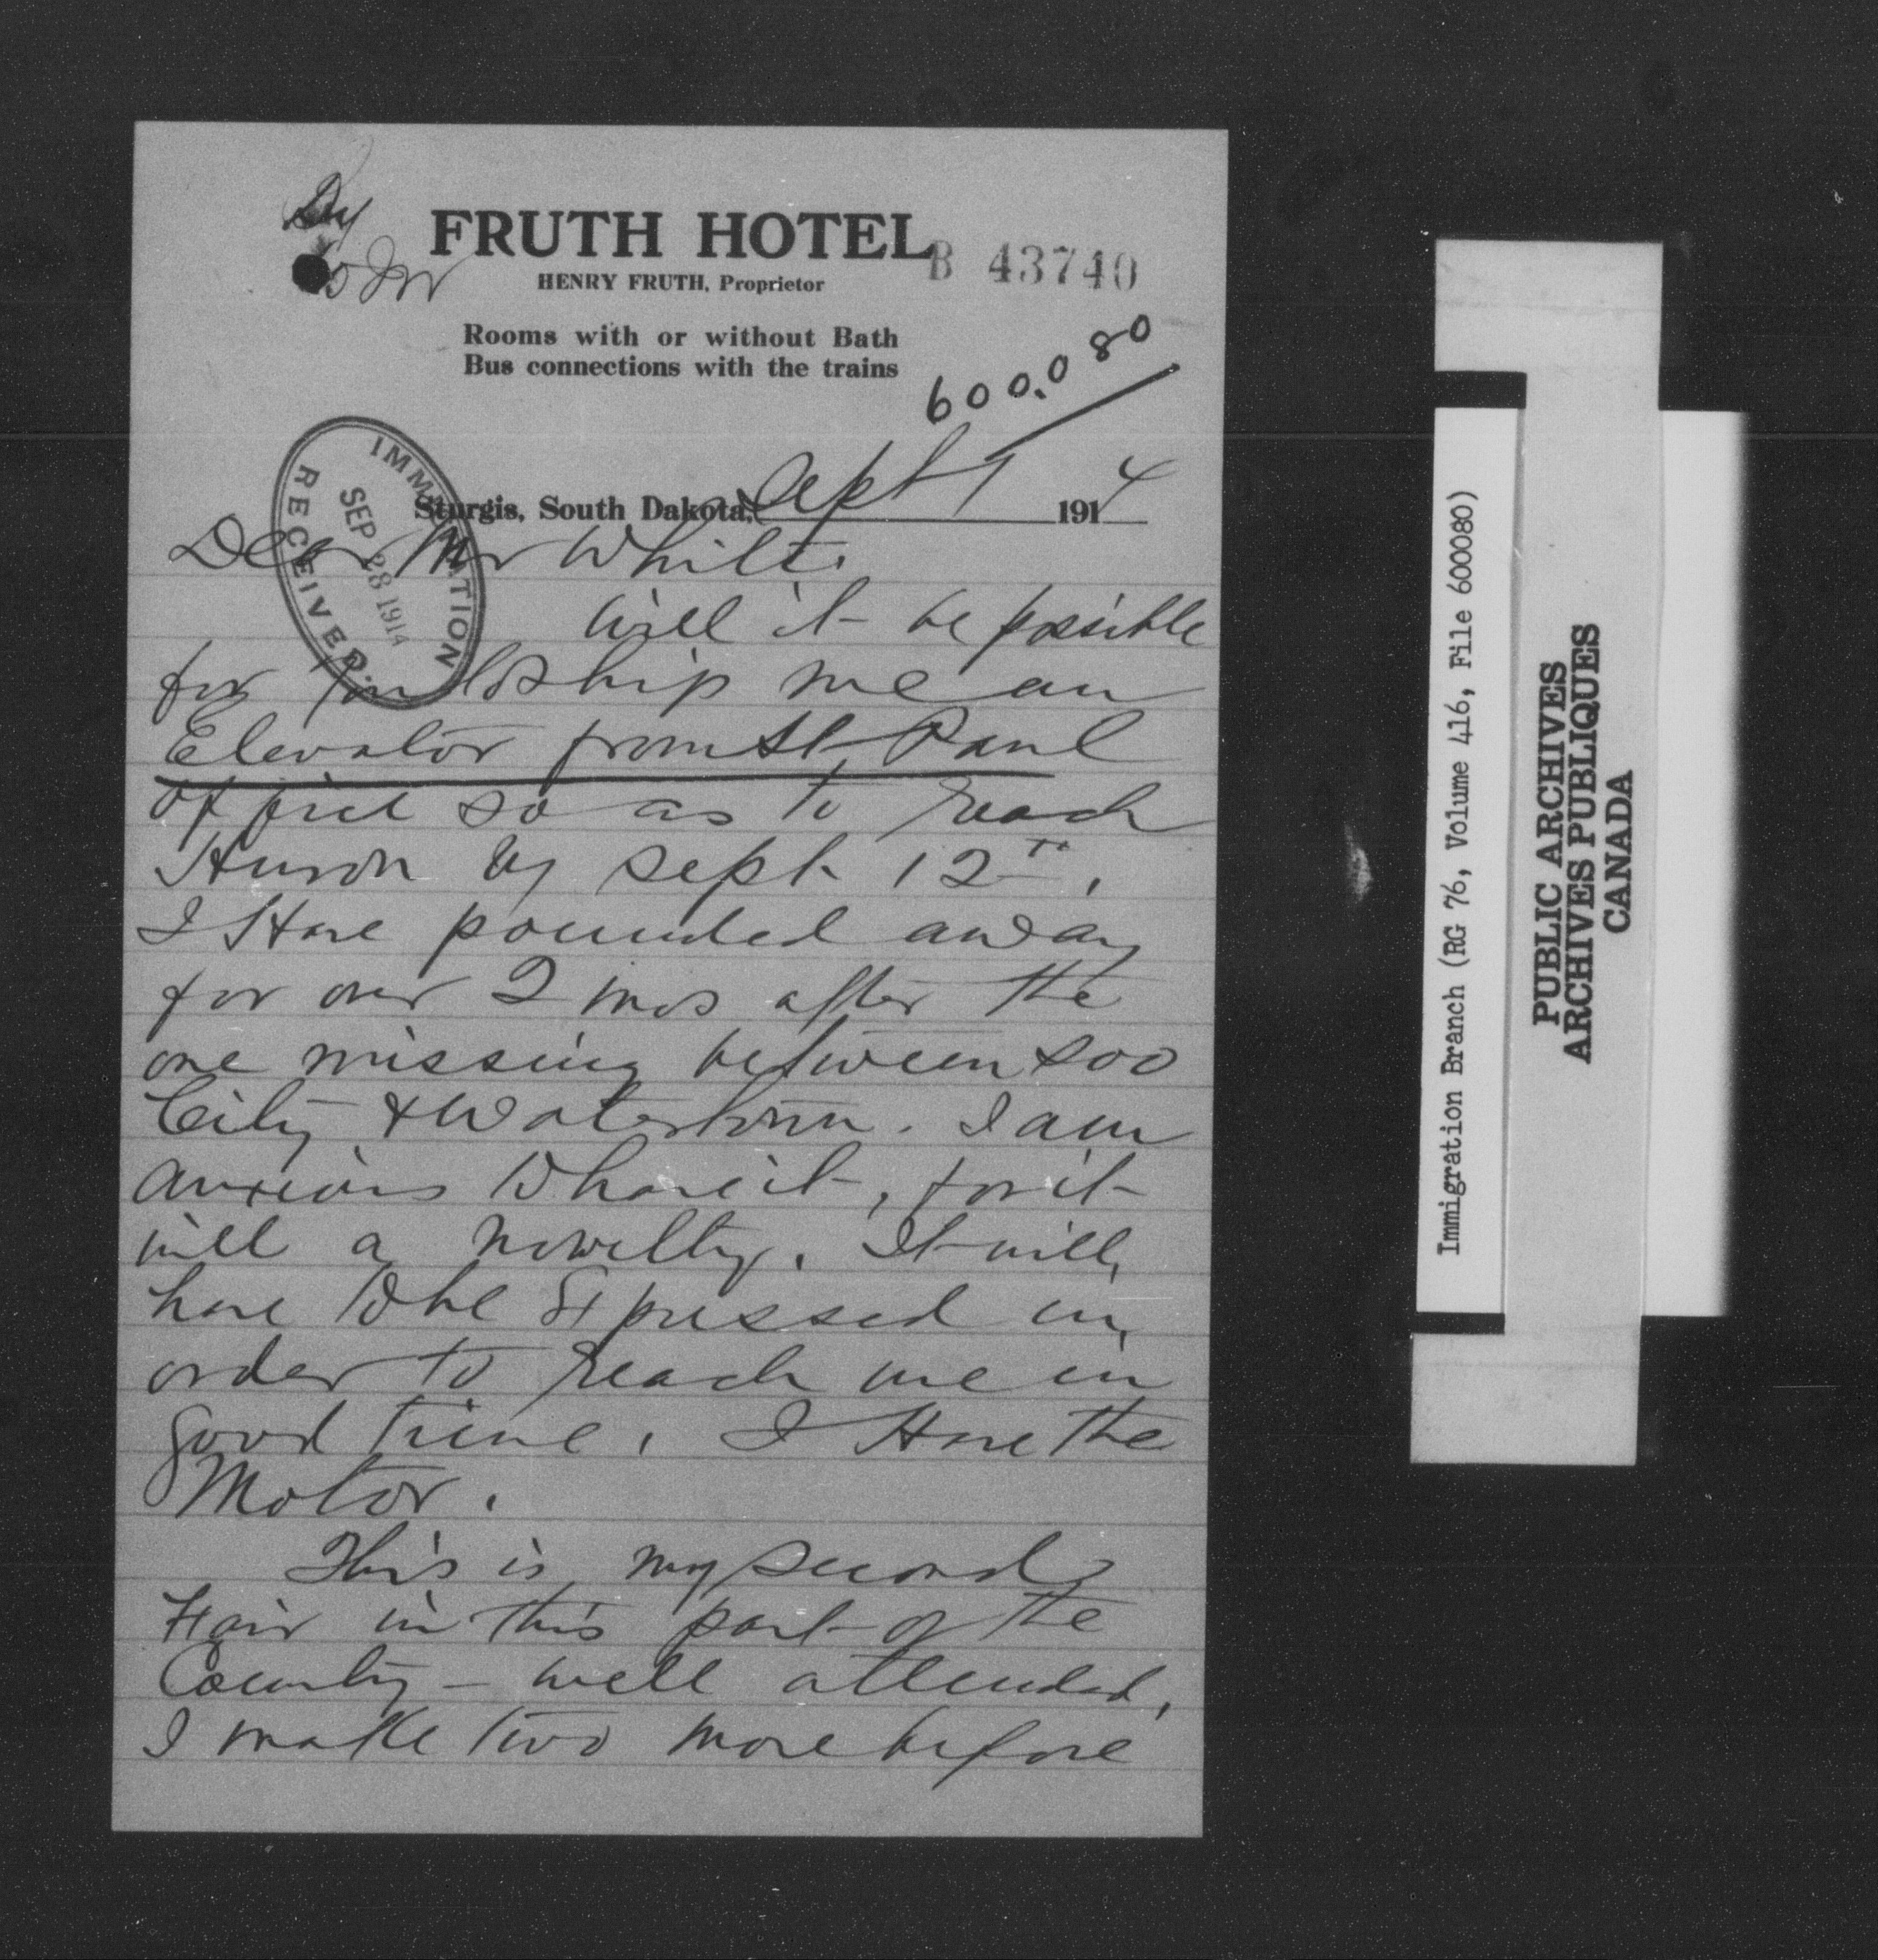 FRUTH HOTEL
B 43740
HENRY FRUTH, Proprietor
Rooms with or without Bath
Bus connections with the trains
600,080
Sturgis, South Dakota, Sept 7 1914
IMMIGRATION
SEP 28 1914
RECEIVED.
Dear Mr White.
Will it be possible
for you to ship me an
Elevator from St Paul
office so as to reach
Huron by Sept 12th.
I Have pounded away
for over 2 mos after the
one missing between Soo
City & Watertown. I am
anxious to have it, for it
will a nowelty. It will
have to be Expressed in
order to reach me in
good time. I Have the
Motor.
This is my second
Fair in this part of the
County - well attended,
I make two more before
Immigration Branch (RG 76, Volume 416, File 600080)
PUBLIC ARCHIVES
ARCHIVES PUBLIQUES
CANADA